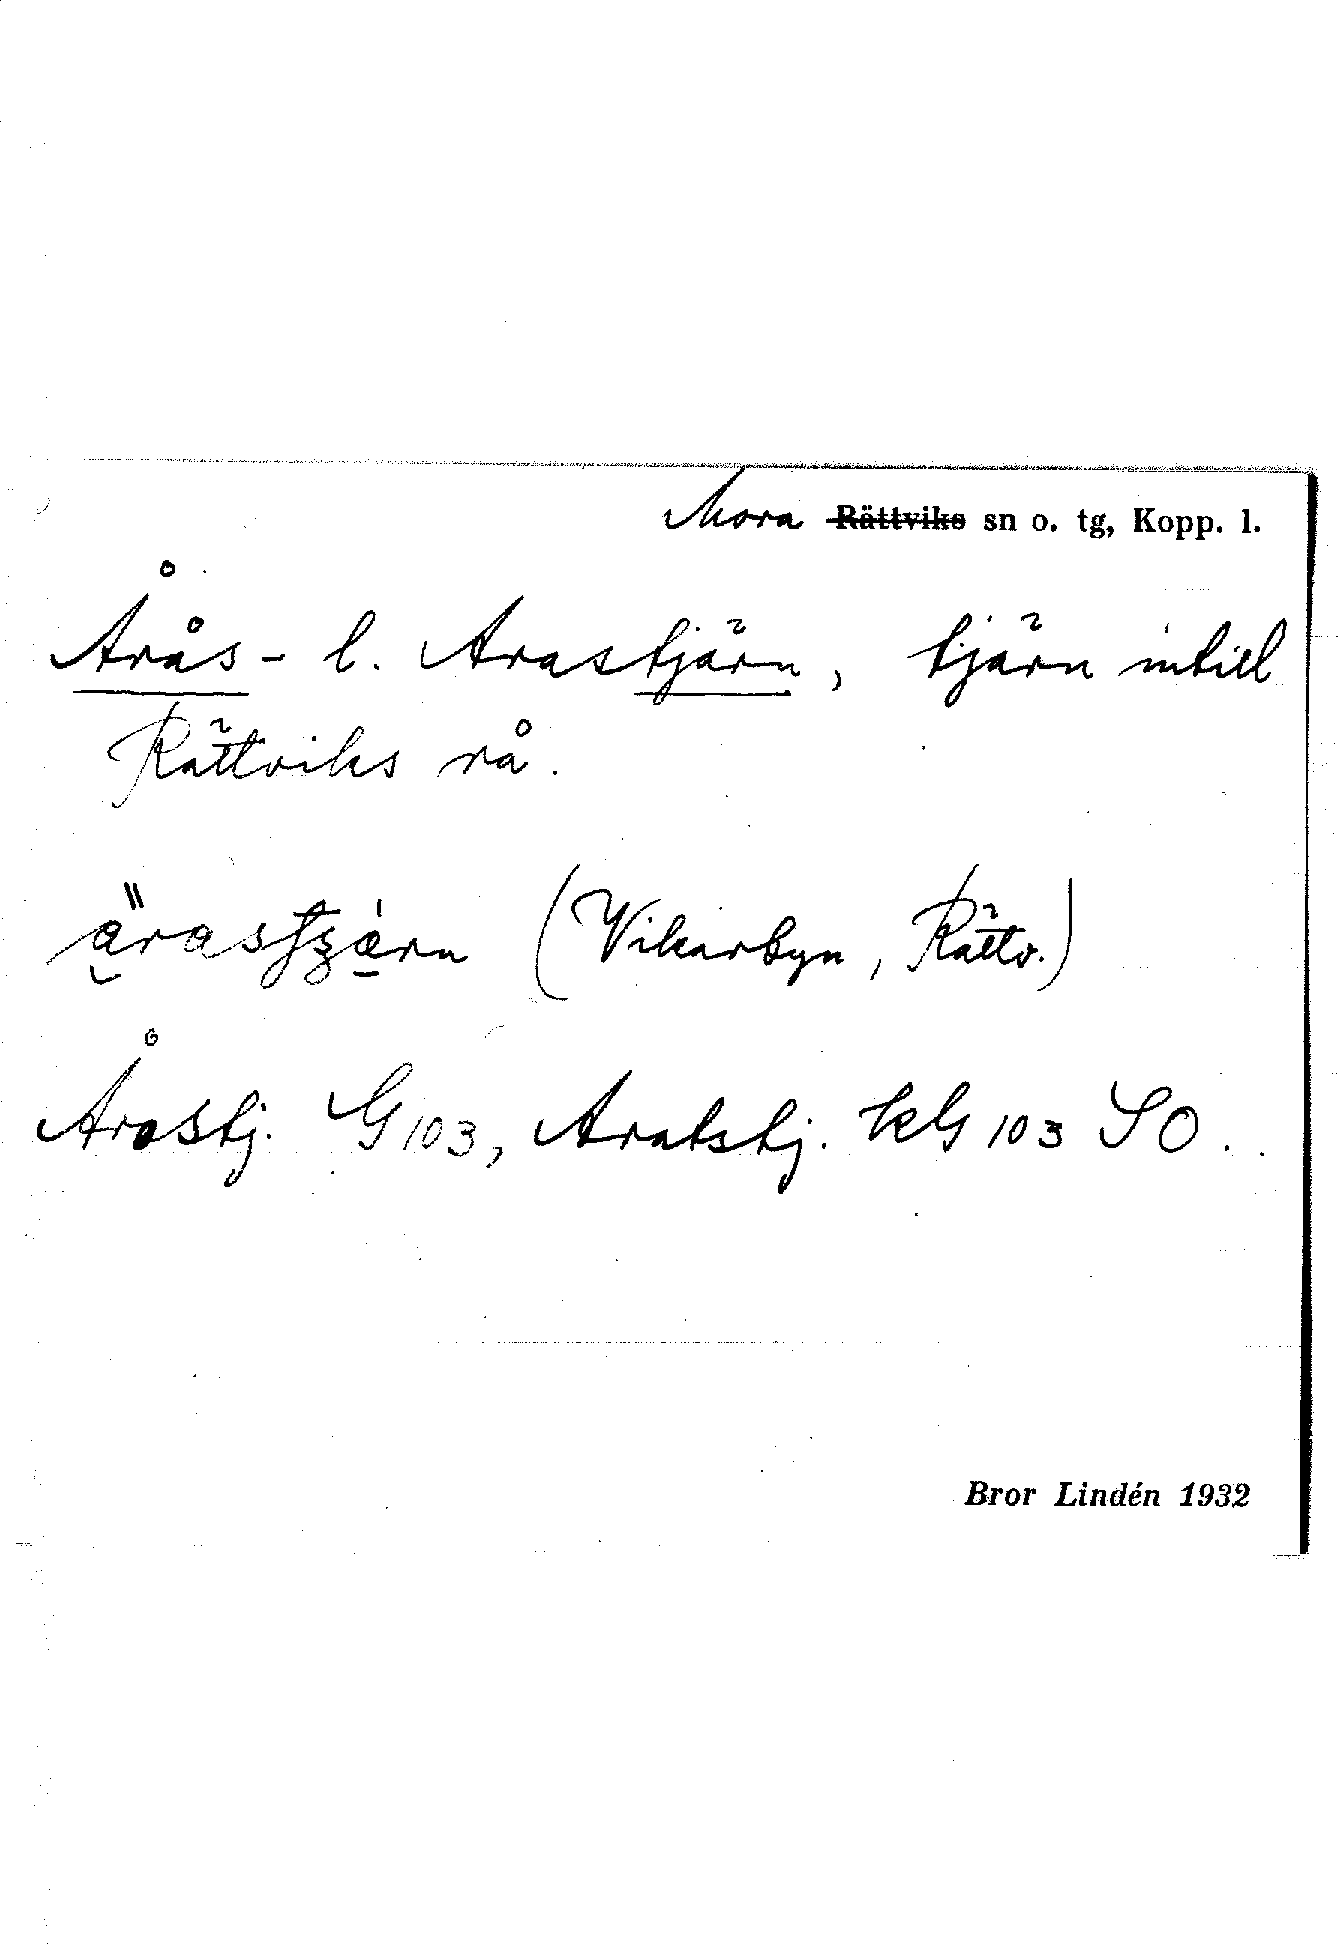 Mora ~~Rättviks~~ sn o. tg, Kopp. l.
Årås- l. Arastjärn, tjärn intill
Rättviks rå.
(Vikarbyn, Rättv.)
Årostj. G 103, Aratstj. kG 103 SO.
Bror Lindén 1932